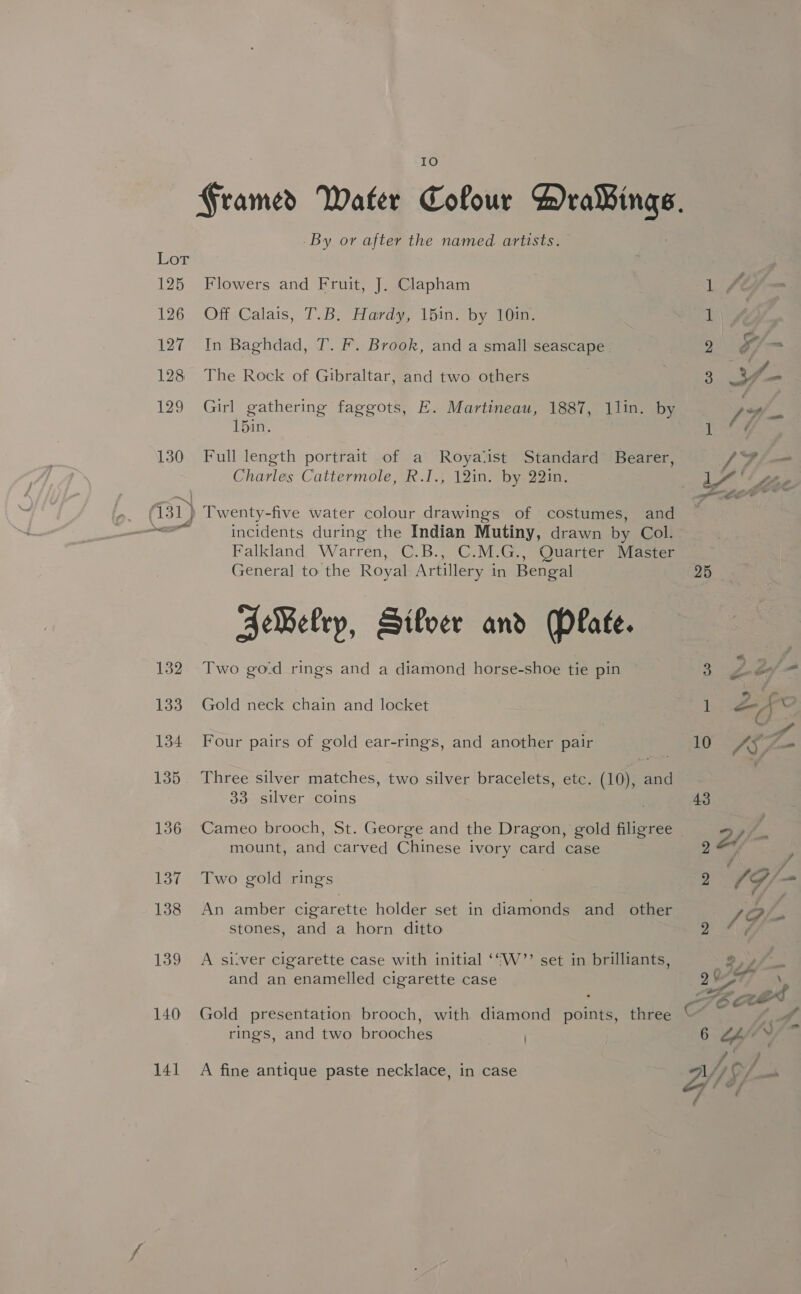 10
Framed Water Colour Drawings.
By or after the named artists.
Lot
125 Flowers and Fruit, J. Clapham 1
126 Off Calais, T.B. Hardy, 15in. by 10in. 1
127 In Baghdad, T. F. Brook, and a small seascape 2
128 The Rock of Gibraltar, and two others 3
129 Girl gathering faggots, E. Martineau, 1887, 11in. by
15in. 1
130 Full length portrait of a Royalist Standard Bearer,
Charles Cattermole, R.I., 12in. by 22in. 1
131 Twenty-five water colour drawings of costumes, and
incidents during the Indian Mutiny, drawn by Col.
Falkland Warren, C.B., C.M.G., Quarter Master
General to the Royal Artillery in Bengal 25
Jewelry, Silver and Plate.
132 Two gold rings and a diamond horse-shoe tie pin 3
133 Gold neck chain and locket 1
134 Four pairs of gold ear-rings, and another pair 10
135 Three silver matches, two silver bracelets, etc. (10), and
33 silver coins 43
136 Cameo brooch, St. George and the Dragon, gold filigree
mount, and carved Chinese ivory card case 2
137 Two gold rings 2
138 An amber cigarette holder set in diamonds and other
stones, and a horn ditto 2
139 A silver cigarette case with initial ‘‘W’’ set in brilliants,
and an enamelled cigarette case 2
140 Gold presentation brooch, with diamond points, three
rings, and two brooches 6
141 A fine antique paste necklace, in case